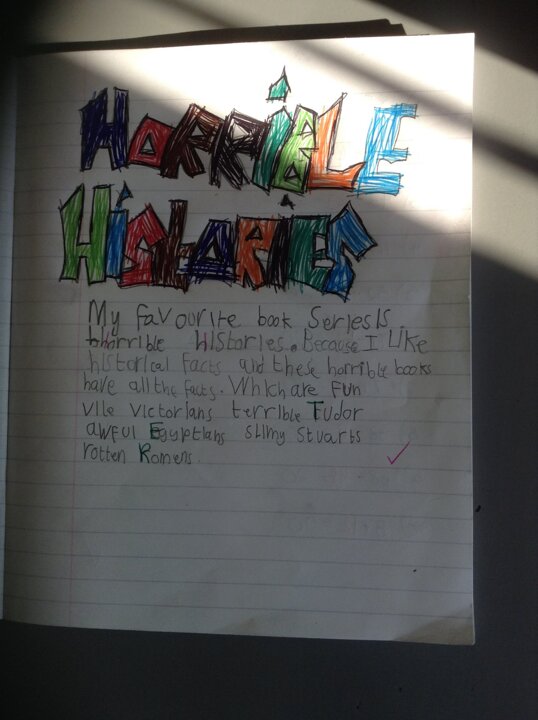 HORRiBLE
HiStORiES
My favourite book Series is
horrible histories. Because I Like
historical facts and these horrible books
have all the facts. Which are fun
vile victorians terrible Tudor
awful Egyptians slimy Stuarts
rotten Romens.